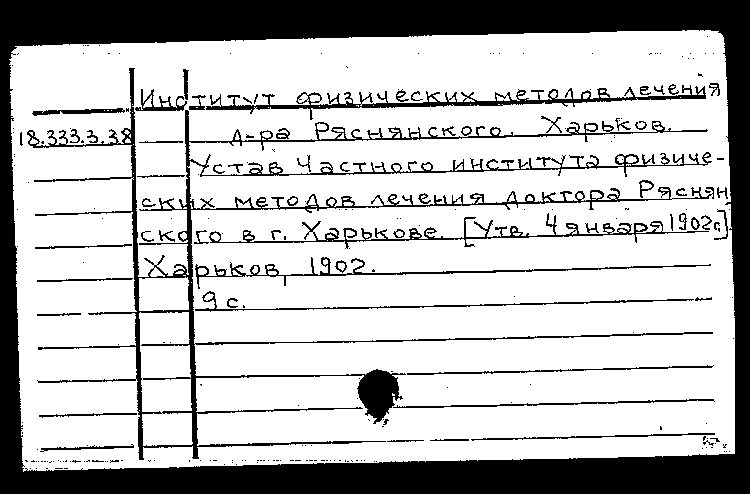 Институт физических методов лечения
18.333.3.38 д-ра Ряснянского. Харьков.
Устав Частного института физиче-
ских методов лечения доктора Ряснян
ского в г. Харькове. [Утв. 4 января 1902г.]
Харьков, 1902.
9 с.